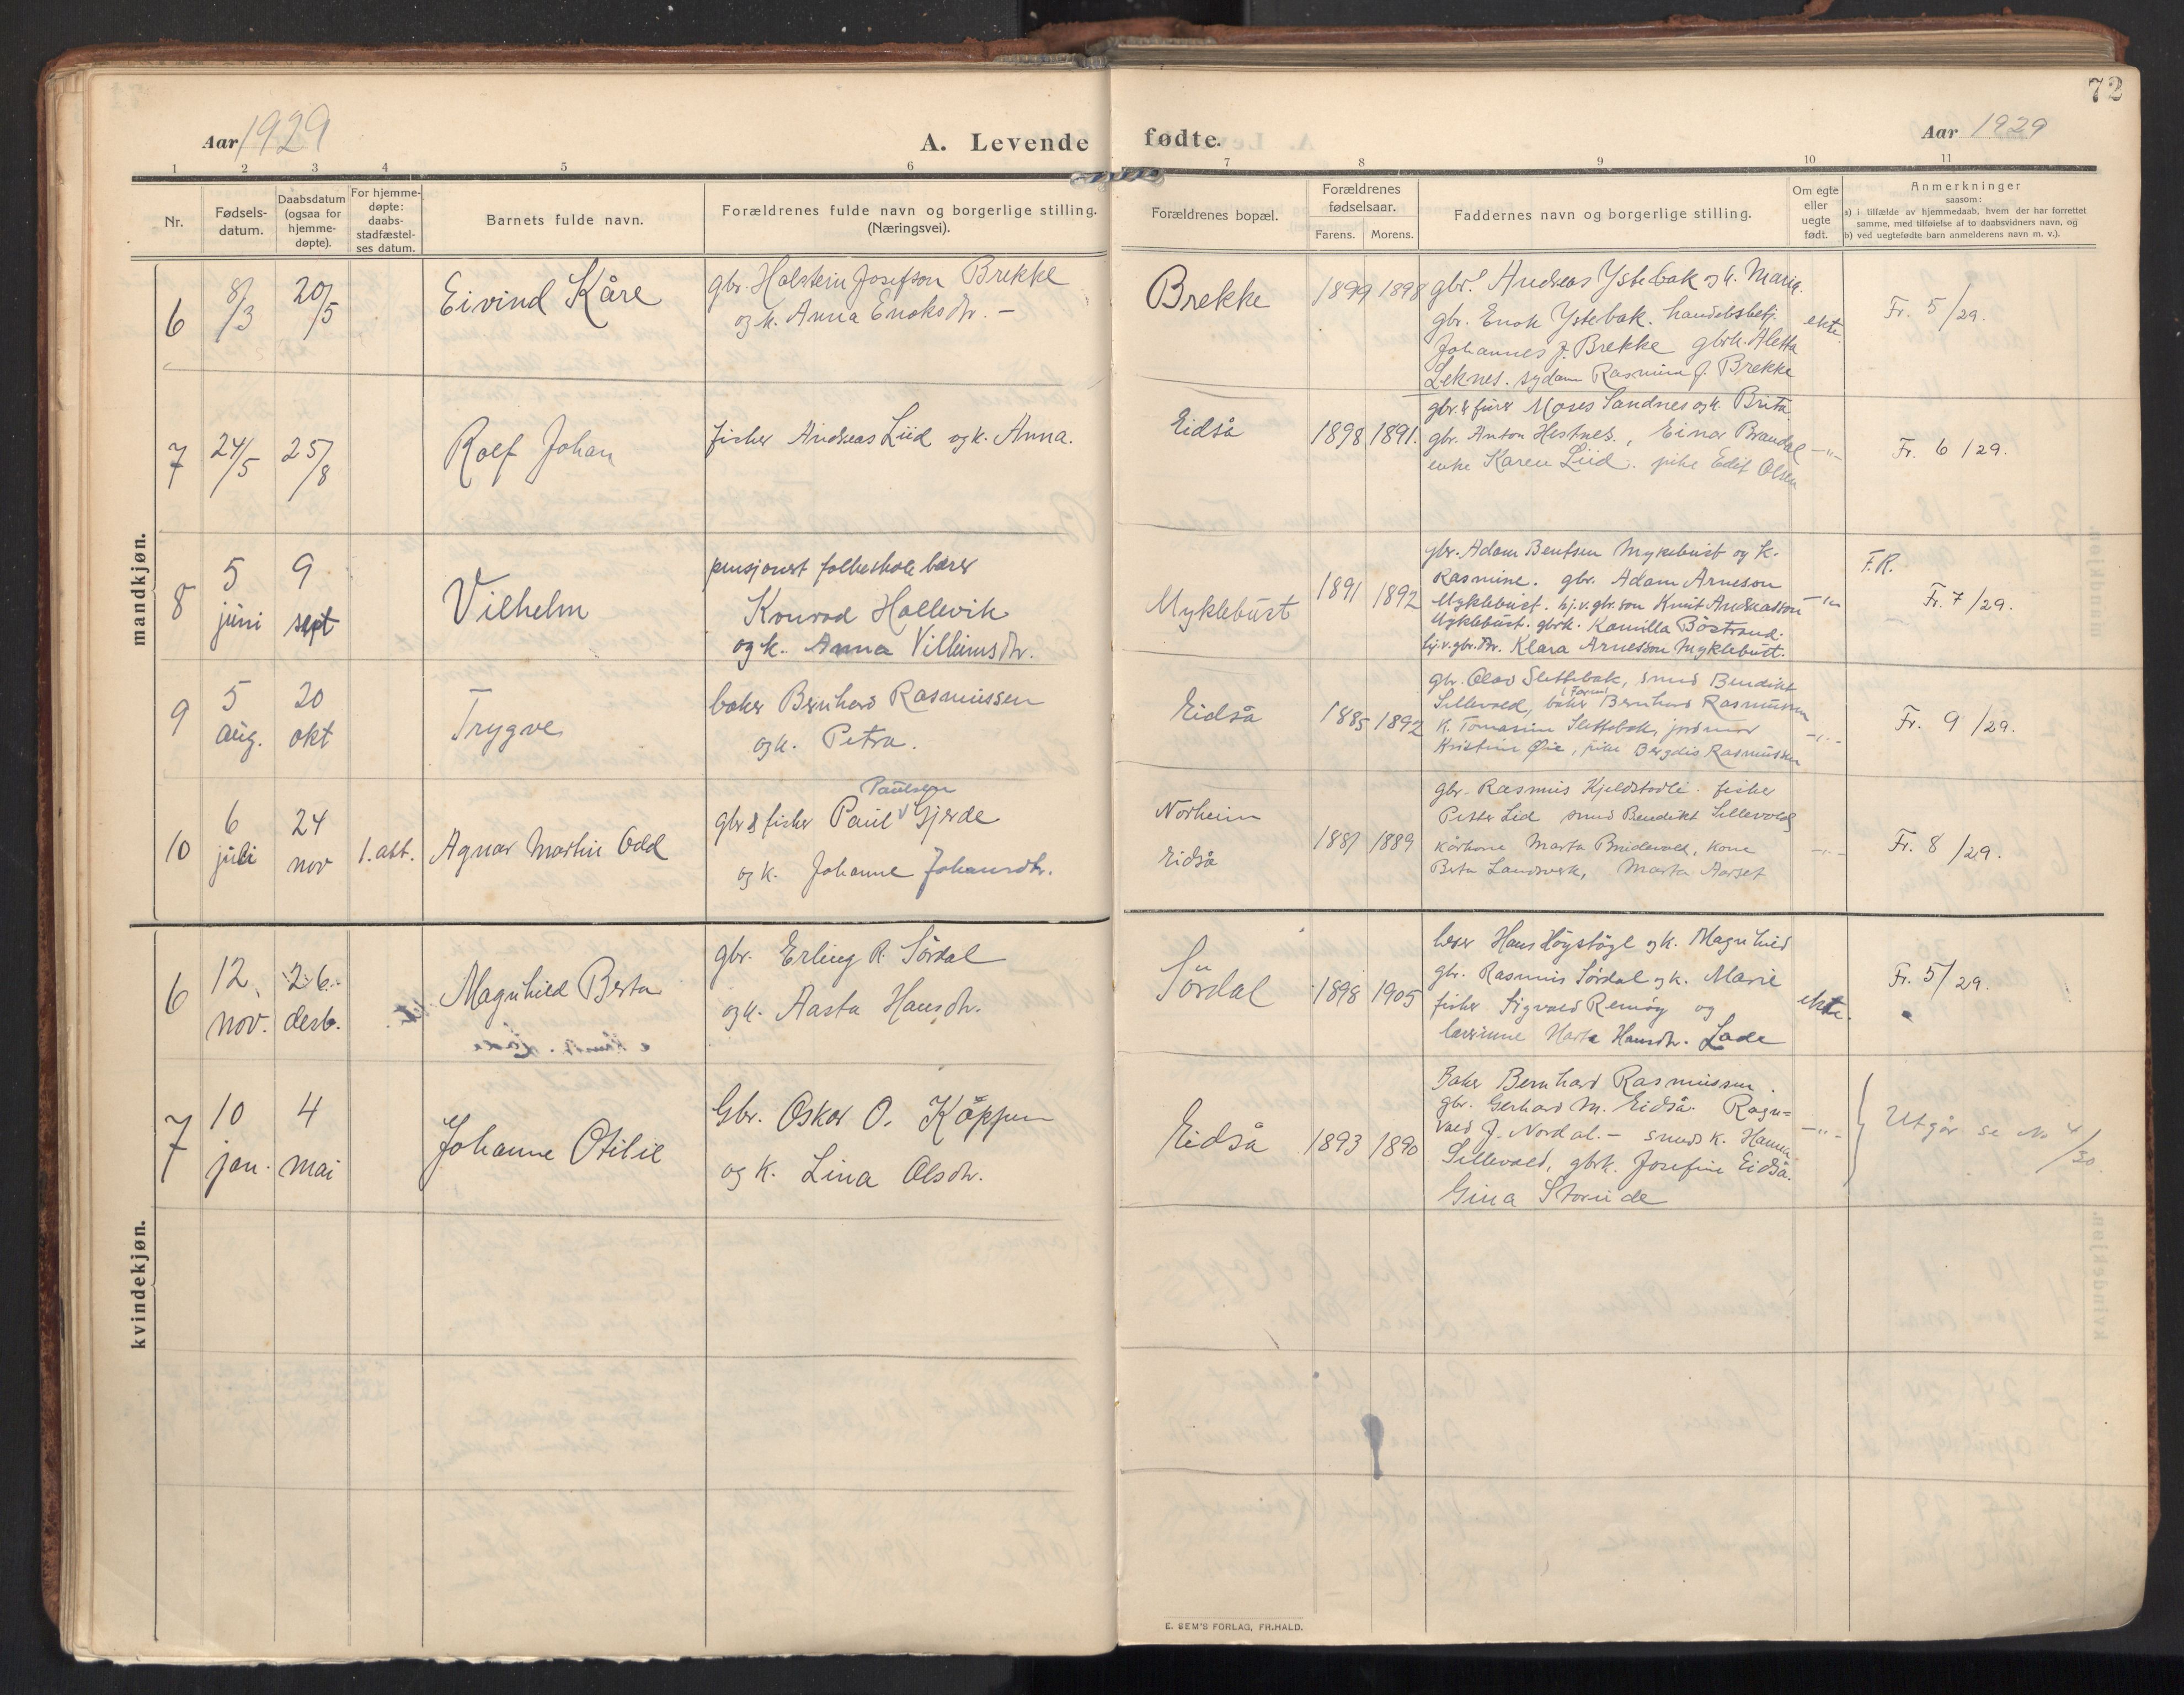 72
Aar 1929
A. Levende fødte.
Aar 1929
1 2 3 4 5 6 7 8 9 10 11
Nr.
Fødsels-
datum.
Daabsdatum
(ogsaa for
hjemme-
døpte).
For hjemme-
døpte:
daabs-
stadfæstel-
ses datum.
Barnets fulde navn.
Forældrenes fulde navn og borgerlige stilling.
(Næringsvei).
Forældrenes bopæl.
Forældrenes
fødselsaar.
Farens. Morens.
Faddernes navn og borgerlige stilling.
Om egte
eller
uegte
født.
Anmerkninger
saasom:
a) i tilfælde av hjemmedaab, hvem der har forrettet
samme, med tilføielse af to daabsvidners navn, og
b) ved uegtefødte barn anmelderens navn m. v.).
mandkjøn.
6
8/3
20/5
Eivind Kåre
gbr. Holstein Josefson Brekke
og k. Anna Enoksdtr. -
Brekke
1899 1898
gbr. Andreas Ystebak og k. Marie.
gbr. Enok Ystebak. handelsbetj.
Johannes J. Brekke gbrk. Aletta
Leknes. sydame Rasmina J. Brekke
ekte.
Fr. 5/29.
7
24/5
25/8
Rolf Johan
fisker Andreas Liid og k. Anna.
Eidså
1898 1891.
gbr. & fisker Moses Sandnes og k. Brita
gbr. Anton Hestnes., Einar Brandal
enke Karen Liid. pike Edit Olsen
-"-
Fr. 6/29.
8
5
juni
9
sept
Vilhelm
pensjonert folkeskolelærer
Konrad Hallevik
og k. Anna Villumsdtr.
Myklebust
1891 1892
gbr. Adam Bentsen Myklebust og k.
Rasmine. gbr. Adam Arneson
Myklebust. hj.v.gbr.søn Knut Andreasson
Myklebust. gbrk. Kamilla Böstrand.
hj.v.gbr.dtr. Klara Arnesson Myklebust.
-"-
F.R.
Fr. 7/29.
9
5
aug.
20
okt
Trygve
baker Bernhard Rasmussen
og k. Petra.
Eidså
1885 1892
gbr. Olav Slettebak, smed Bendikt
Sillevold, baker (Faren) Bernhard Rasmussen
k. Tomasine Slettebak, jordmor
Kristine Øie, pike Bergdis Rasmussen
-"-
Fr. 9/29.
10
6
juli
24
nov
1. abt.
Agnar Martin Odd
Paulsen
gbr & fisker Paul v Gjerde
og k. Johanne Johansdtr.
Norheim
Eidså
1881 1889
gbr. Rasmus Kjeldstadli. fisker
Petter Lid smed Bendikt Sillevold
kårkone Marta Breidevold, kone
Berta Landsverk, Marta Aarset
-"-
Fr. 8/29.
kvindekjøn.
6
12
nov.
26
desb.
Magnhild Berta
gbr. Erling R. Sørdal
og k. Aasta Hansdtr.
Sørdal
1898 1905
lærer Hans Høystøyl og k. Magnhild
gbr. Rasmus Sørdal og k. Marie
fisker Sigvald Remøy og
lærerinne Marta Hansdtr. Lade
ekte.
Fr. 5/29.
7
10
jan.
4
mai
Johanne Otilie
Gbr. Oskar O. Köppen
og k. Lina Olsdtr.
Eidså
1893 1890
Baker Bernhard Rasmussen.
gbr. Gerhard M. Eidså. Ragn=
vald J. Nordal. - smeds k. Hanna
Sillevold, gbrk. Josefine Eidså.
Gina Storeide
-"-
Utgår se No 4/30.
E. SEM'S FORLAG, FR.HALD.